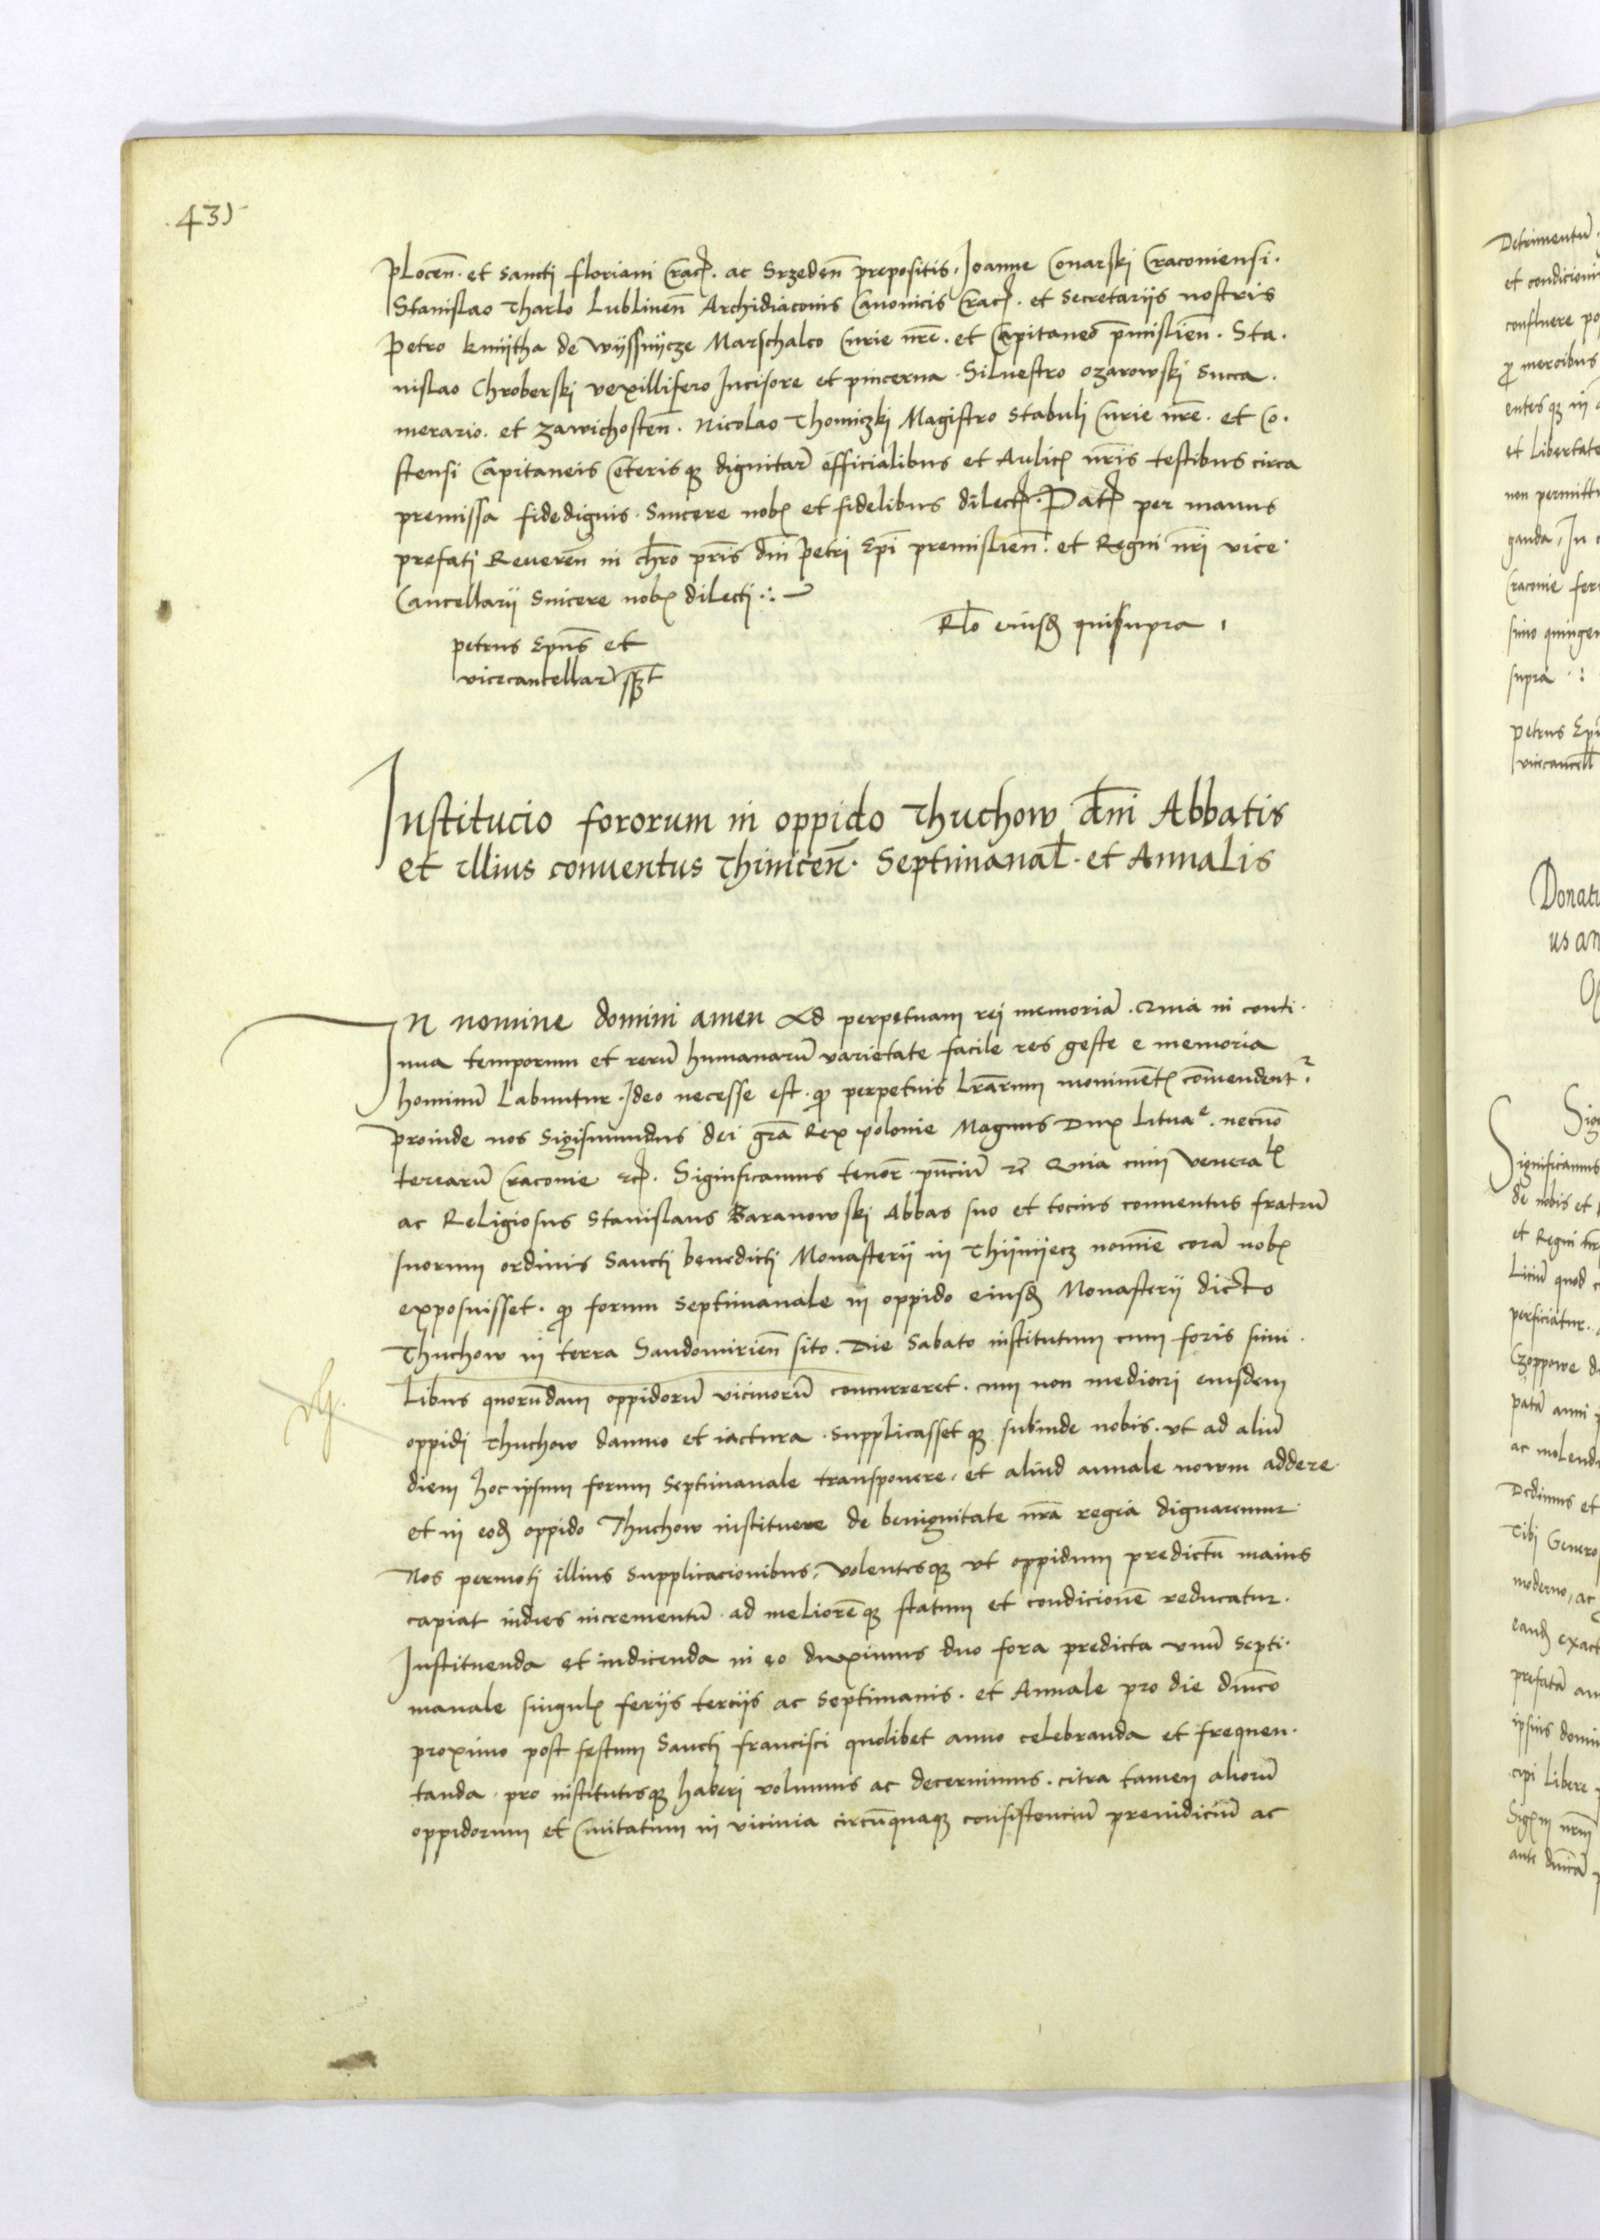 431
plocen̄. et sancti floriani Crac. ac Srzeden̄ prepositis, Joanne Conarski Cracouiensi.
Stanislao Tharlo Lublinen̄ Archidiaconis Canonicis Crac. et Secretarijs nostris
Petro kmijtha de wijssnijcze Marschalco Curie nr̄e. et Capitaneo p̄mislien̄. Sta.
nislao Chroberski vexillifero Incisore et pincerna. Siluestro ozarowski Succa.
merario. et zawichosten̄. Nicolao Thomiczki Magistro Stabuli Curie nr̄e. et Co.
stensi Capitaneis Ceterisq dignitar̄ officialibus et Aulic nr̄is testibus circa
premissa fidedignis. Sincere nob et fidelibus dilect. Dat per manus
prefati Reueren̄ in chr̄o pr̄is dn̄i Petri Ep̄i premislien̄. et Regni nr̄i vice
Cancellarij Sincere nob dilecti
Rl̄o eiusd quisupra
petrus Epūs et
vicecancellar̄ sst
Institucio fororum in oppido Thuchow dn̄i Abbatis
et illius conuentus Thinicen̄. Septimanal. et Annalis
In nomine domini amen Ad perpetuam rei memoriā. Quia in conti.
nua temporum et rerū humanarū varietate facile res geste e memoria
hominū labuntur. Ideo necesse est. q perpetuis lr̄arum moniment cōmendent.
proinde nos Sigismundus dei gr̄a Rex polonie Magnus Dux Litua. necnō
terrarū Cracouie etc. Significamus tenor̄ pn̄ciū etc Quia cum veneral
ac Religiosus Stanislaus Baranowski Abbas suo et tocius conuentus fratrū
suorum ordinis Sancti benedicti Monasterij in Thijnijecz nomīe corā nob
exposuisset. q forum septimanale in oppido eiusd Monasterij dicto
Thuchow in terra Sandomirien̄ sito. Die Sabato institutum cum foris simi.
libus quorundam oppidorū vicinorū concurreret. cum non mediocri eiusdem
oppidi Thuchow damno et iactura. supplicassetq subinde nobis. vt ad aliū
diem hoc ipsum forum septimanale transponere, et aliud annale nowm addere
et in eod oppido Thuchow instituere de benignitate nr̄a regia dignaremur
Nos permoti illius supplicacionibus, volentesq vt oppidum predictū maius
capiat indies incrementū. ad meliorēq statum et condicionē reducatur.
Instituenda et indicenda in eo duximus duo fora predicta vnū septi.
manale singul ferijs tercijs ac septimanis. et Annale pro die dn̄ico
proximo post festum Sancti francisci quolibet anno celebranda et frequen.
tanda. pro institutisq haberi volumus ac decernimus. citra tamen aliorū
oppidorum et Ciuitatum in vicinia circūquaq consistenciū preiudiciū ac
Detrimentū
et condicioni
confluere po
p mercibus
entesq in
et libertate
non permitt
ganda, In
Cracouie fer
simo quingen
supra
Petrus Epū
vicecancell
Donati
us an
Sig
Significamus
de nobis et
et Regni
liciū quod
perficiatur.
Czoppowe d
patā anni
ac molend
Dedimus et
Tibi Genero
moderno, ac
eand exact
prefatā an
ipsius domi
cipi libere
nrm
ante dn̄icā